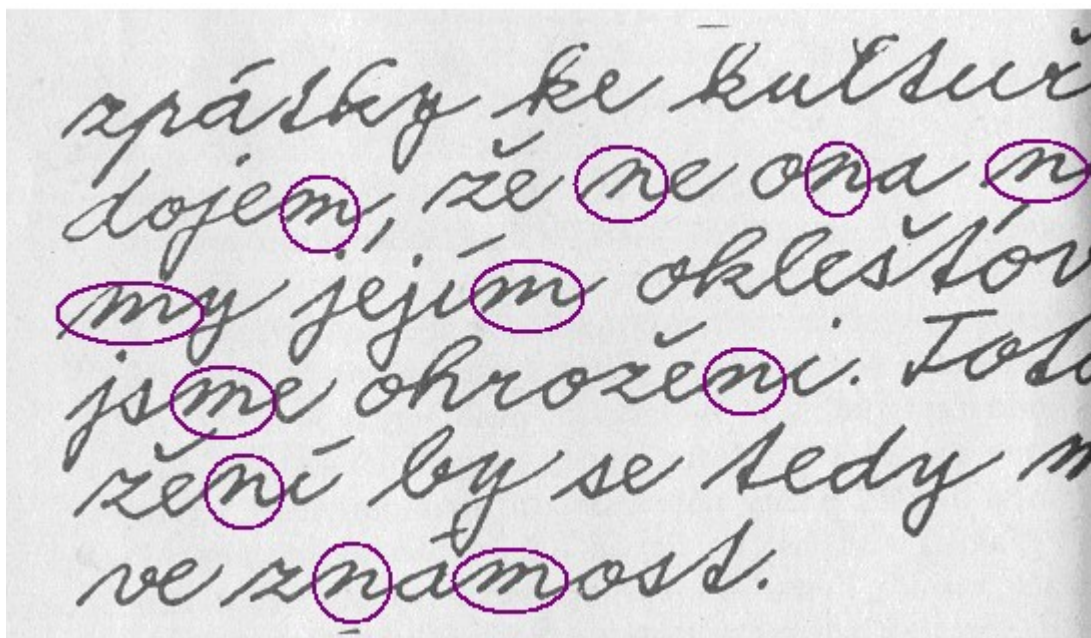 zpátky ke kultuř
dojem, že ne ona n
my jejím oklešťov
jsme ohroženi. Toto
žení by se tedy m
ve známost.